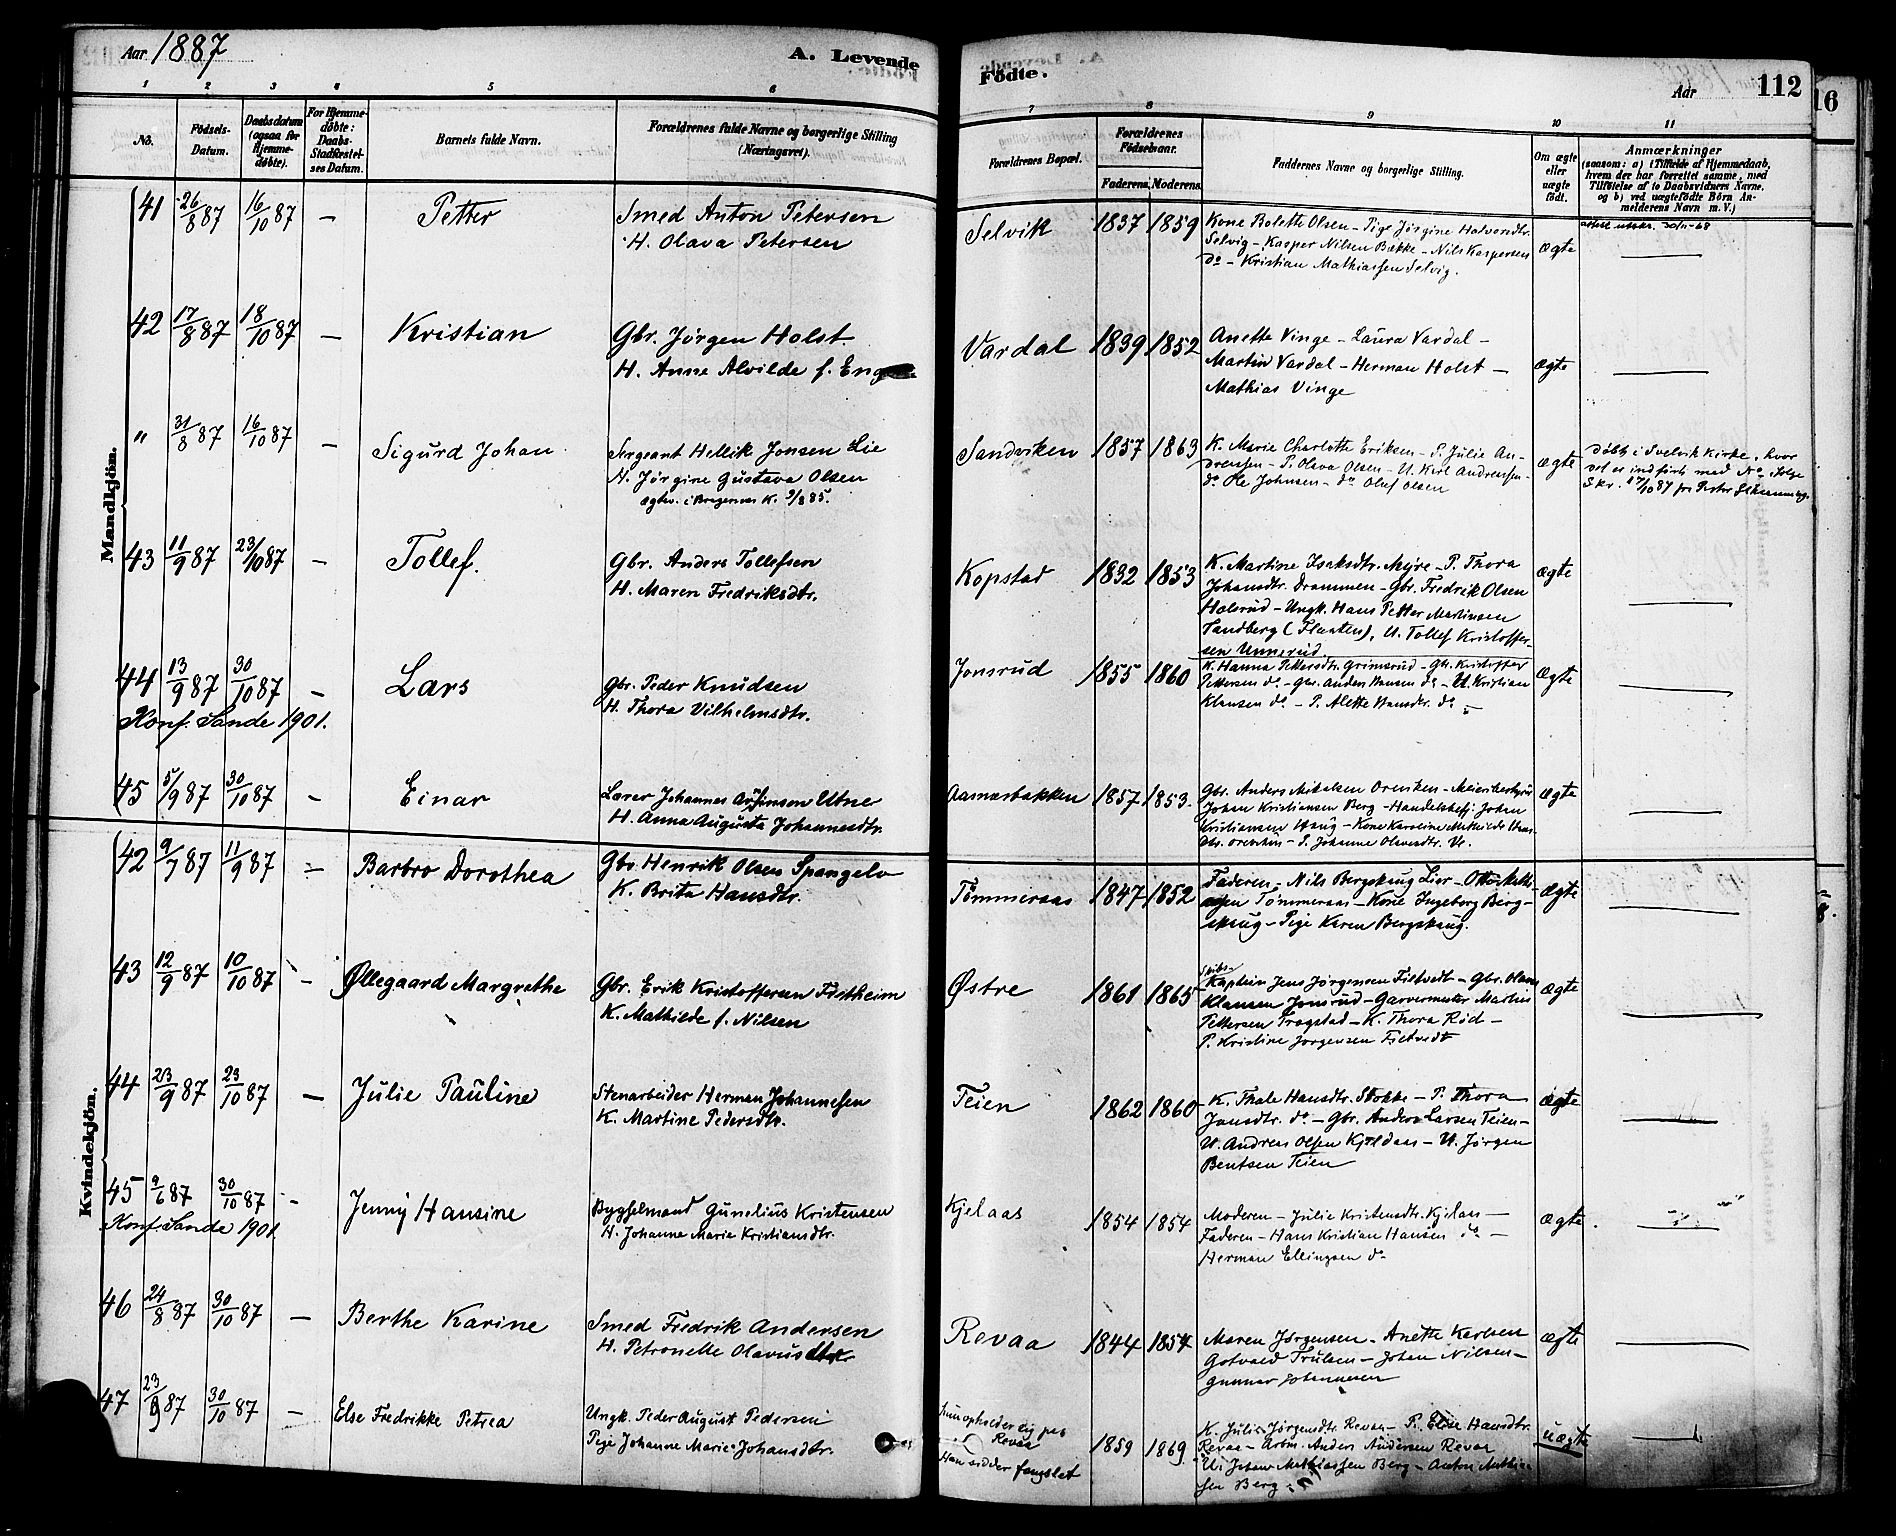 Aar 1887
A. Levende
Födte.
Aar
112
16
1 2 3 4 5 6 7 8 9 10 11
No.
Födsels-Datum.
Daabsdatum (ogsaa for Hjemme-döbte).
For Hjemme-döbte: Daabs-Stadfæstel-ses Datum.
Barnets fulde Navn.
Forældrenes fulde Navne og borgerlige Stilling (Næringsvei).
Forældrenes Bopæl.
Forældrenes Födselsaar.
Faderens. Moderens.
Faddernes Navne og borgerlige Stilling.
Om ægte eller uægte födt.
Anmærkninger
(saasom: a) i Tilfælde af Hjemmedaab,
hvem der har forrettet samme, med
Tilföielse af to Daabsvidners Navne,
og b) ved uægtefödte Börn An-
melderens Navn m. V.)
Mandkjön.
41 26/8 87 16/10 87 — Petter
Smed Anton Petersen
H. Olava Petersen
Selvik 1837 1859
Kone Bolette Olsen – Pige Jørgine Halvorsdtr.
Selvig – Kasper Nilsen Bække – Nils Kaspersen
do – Kristian Mathiassen Selvig.
ægte
42 17/8 87 18/10 87 — Kristian
Gbr. Jörgen Holst
H. Anne Alvilde f. Eng
Vardal 1839 1852
Anette Vinge – Laura Vardal –
Martin Vardal – Herman Holst –
Mathias Vinge
ægte
" 31/8 87 16/10 87 — Sigurd Johan
Sergeant Hellik Jonsen Lie
H. Jörgine Gustava Olsen
ægtev. i Bragernes K. 9/8 85.
Sandviken 1857 1863
K. Marie Charlotte Eriksen – P. Julie An-
dreassen – P. Olava Olsen – U. Karl Andreassen –
do Ole Johnsen – do Olaf Olsen
ægte
Döbt i Svelvik Kirke, hvor
det er indfört med No. Ifølge
Skr. 17/10 87 fra Pastor
43 11/9 87 23/10 87 — Tollef.
Gbr. Anders Tollefsen
H. Maren Fredriksdtr.
Kopstad 1832 1853
K. Martine Isaksdtr. Myre – P. Thora
Johansdtr. Drammen – Gbr. Fredrik Olsen
Holerud – Ungk. Hans Petter Martinsen
Sandberg (Flaaten), U. Tollef Kristoffer-
sen Unnerud.
ægte
44 13/9 87 30/10 87 — Lars
Konf. Sande 1901.
Gbr. Peder Knudsen
H. Thora Vilhelmsdtr.
Jonsrud 1855 1860
K. Hanna Pettersdtr. Grimsrud – Gbr. Kristoffer
Pettersen do – Gbr. Anders Hansen do – U. Kristian
Klausen do – P. Alette Hansdtr. do
Ægte
45 5/9 87 30/10 87 — Einar
Lærer Johannes Utne
H. Anna Augusta Johannesdtr.
Aasnæsbakken 1857 1853.
Gbr. Anders Mikalsen
Johan Kristiansen Berg – Johan
Kristiansen Haug – Kone Karoline
P. Johanne
Ægte
Kvindekjön.
42 9/7 87 11/9 87 — Barbro Dorothea
Gbr. Henrik Olsen Spangelo
K. Brita Hansdtr.
Tömmeraas 1847 1852
Faderen – Nils Bergskaug Lier –
Tömmeraas – Kone Ingeborg Berg-
skaug – Pige Karen Bergskaug.
Ægte
43 12/9 87 10/10 87 — Øllegaard Margrethe
Gbr. Erik Kristoffersen Fretheim
K. Mathilde f. Nilsen
Østre 1861 1865
Skibs-
Kaptein Jens Jörgensen Filtvedt – Gbr. Olaus
Klausen Jonsrud – Garvermester Martin
Pettersen Trogstad – K. Thora Röd –
P. Kristine Jørgensen Filtvedt
Ægte
44 23/9 87 23/10 87 — Julie Pauline
Stenarbeider Herman Johannesen
K. Martine Pedersdtr.
Teien 1862 1860
K. Thale Hansdtr. Stokke – P. Thora
Jansdtr. do – Gbr. Anders Larsen Teien –
U. Andreas Olsen Kjeldaas – U. Jörgen
Bentsen Teien
ægte
45 9/6 87 30/10 87 — Jenny Hansine
Konf. Sande 1901
Bygselmand Gunelius Kristensen
H. Johanne Marie Kristiansdtr.
Kjelaas 1854 1854
Moderen – Julie Kristensdtr. Kjelaas –
Faderen – Hans Kristian Hansen do –
Herman Ellingsen do
ægte
46 24/8 87 30/10 87 — Berthe Karine
Smed Fredrik Andersen
H. Petronelle Olavusdtr.
Revaa 1844 1854
Maren Jørgensen – Anette Karlsen
Gotvald Trulsen – Johan Nilsen –
Gunnar Johannesen
ægte
47 23/9 87 30/10 87 — Else Fredrikke Petrea
Ungk. Peder August Pedersen
Pige Johanne Marie Johansdtr.
Hun opholder sig paa
Revaa
Han sidder fængslet
1859 1869
K. Julie Jørgensdtr. Revaa – P. Elise Hansdtr.
Revaa – Arbm. Anders Andersen Revaa
U. Johan Mathiassen Berg – Anton Mathias-
sen Berg
uægte